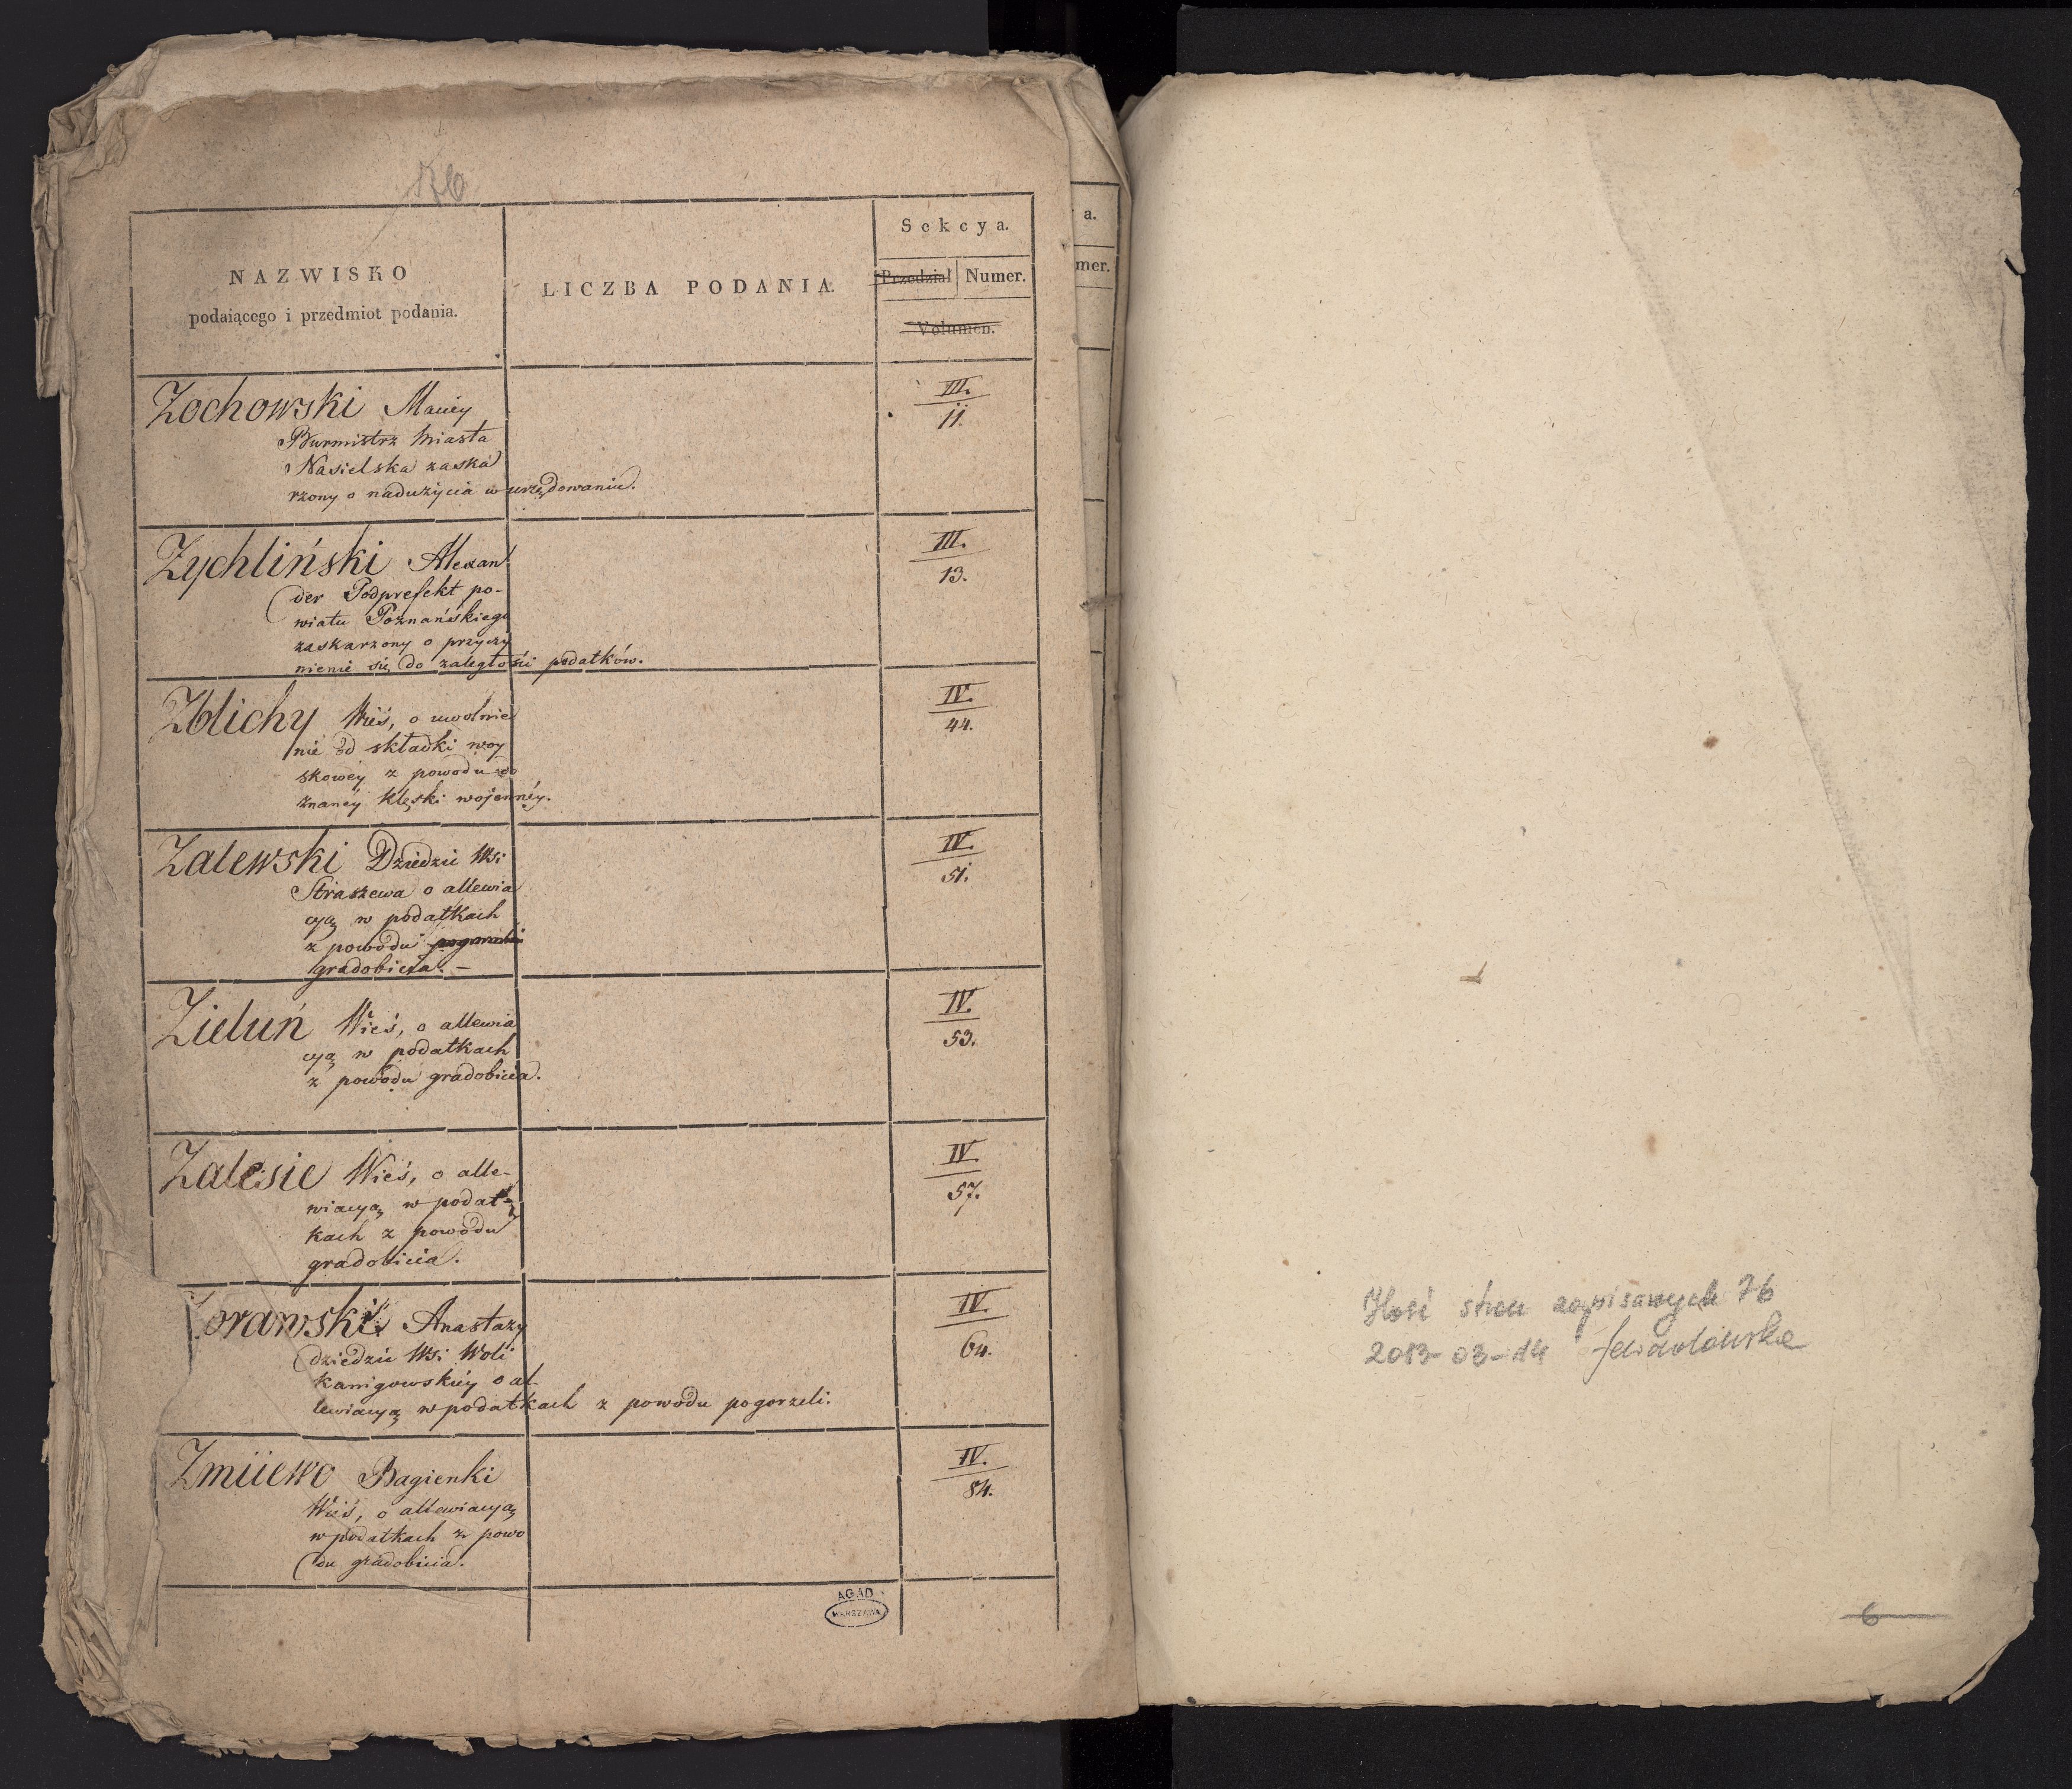 76
NAZWISKO
podaiącego i przedmiot podania.
LICZBA PODANIA.
Sekcya.
Przedział
Numer.
Volumen.
a.
mer.
Zochowski Maciéy
Burmistrz Miasta
Nasielska zaskar
rzony o nadużycia w urzędowaniu.
III.
11.
Zychliński Alexan
der Podprefekt po-
wiatu Poznańskiego
zaskarzony o przyczy
nienie się do zaległości podatków.
III.
13.
Zblichy Wieś, o uwolnie
nie od składki woy
skowéy z powodu do
znanéy klęski wojennéy.
IV.
44.
Zalewski Dziedzic Wsi
Straszewa o allewia
cyą w podatkach
z powodu pogorzeli
gradobicia. –
IV.
51.
Zieluń Wieś, o allewia
cyą w podatkach
z powodu gradobicia.
IV.
53.
Zalesie Wieś, o alle-
wiacyą w podat-
kach z powodu
gradobicia.
IV.
57.
orawski Anastazy
dziedzic Wsi Woli
Kanigowskiéy o al-
lewiacyą w podatkach z powodu pogorzeli.
IV.
64.
Zmiiewo Bagienki
Wieś, o allewiacyą
w podatkach z powo
du gradobicia.
IV.
84.
AGAD
WARSZAWA
Ilość stron zapisanych 76
2013-03-14
6